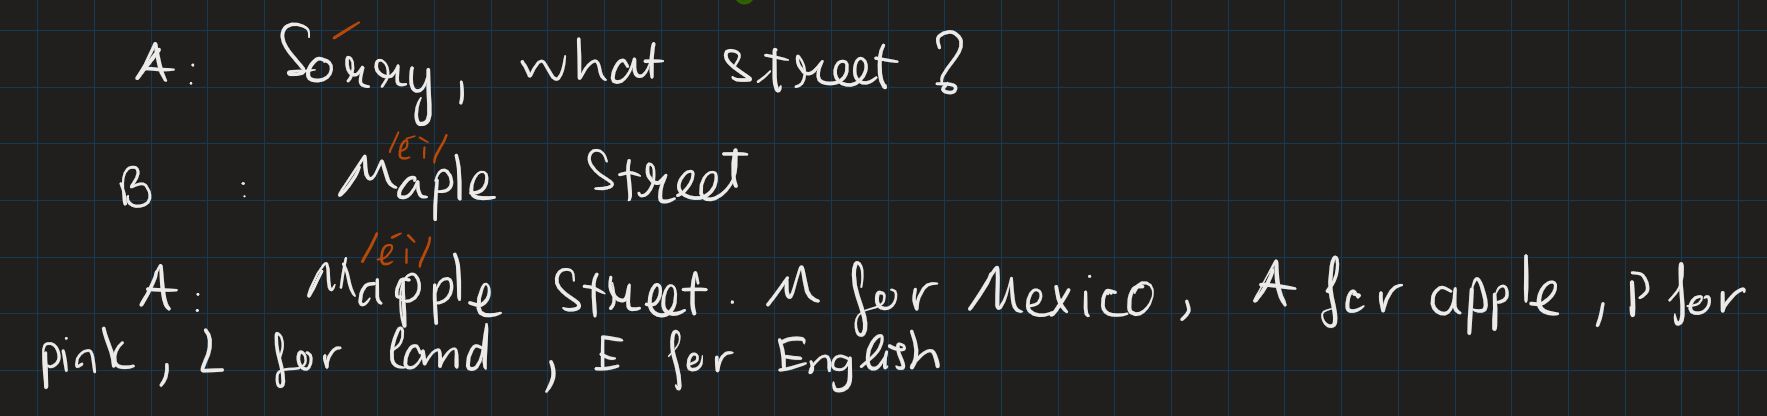 A: Sorry, what street?
/ei/
B : Maple Street
/ei/
A: Mapple Street. M for Mexico, A for apple, P for
pink, L for land, E for English